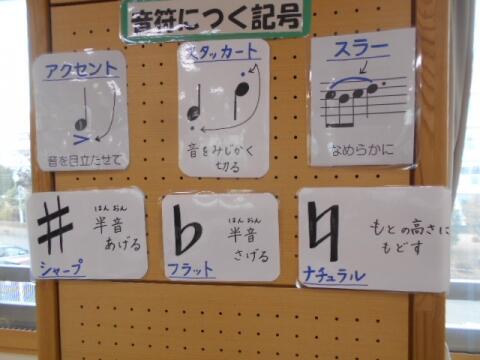 音符につく記号
アクセント
音を目立たせて
スタッカート
音をみじかく
切る
スラー
なめらかに
はん おん
半音
あげる
シャープ
はん おん
半音
さげる
フラット
もとの高さに
もどす
ナチュラル